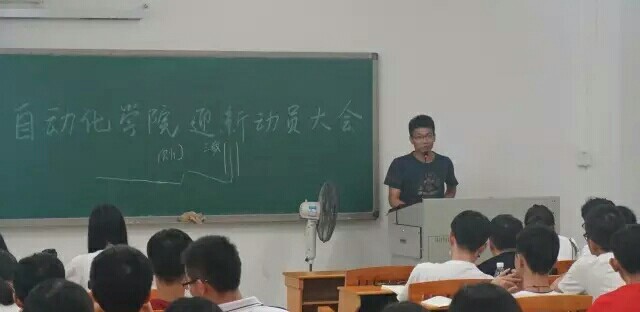 自动化学院迎新动员大会